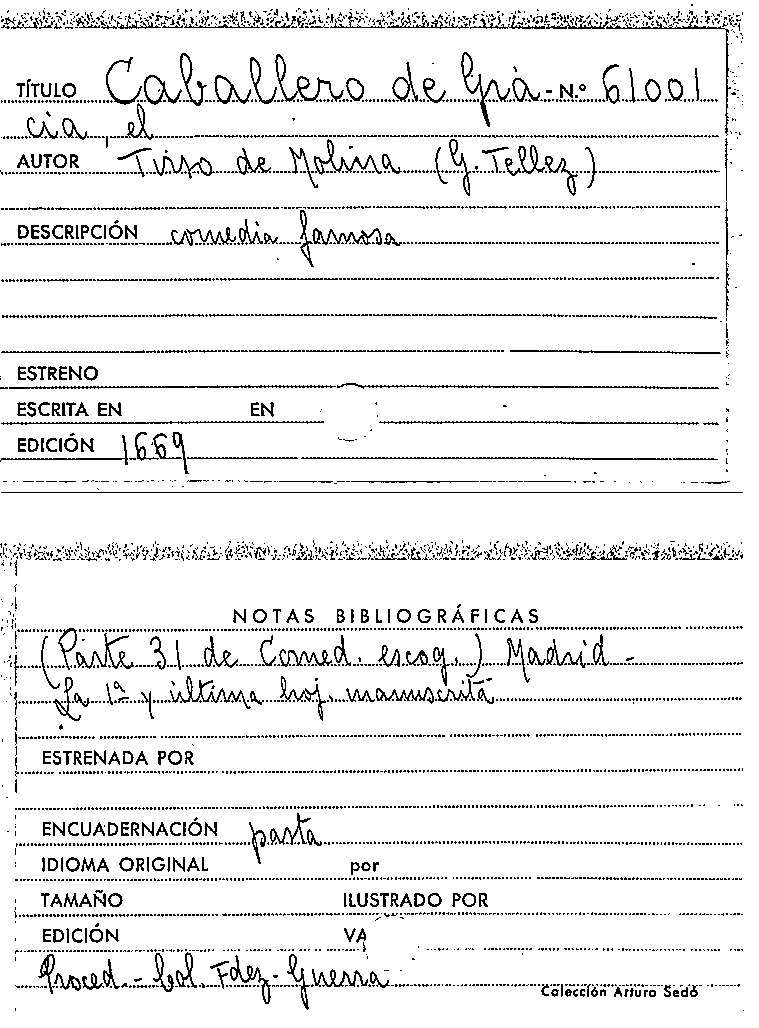 TÍTULO Caballero de Gra- N.º 61001
cia, el
AUTOR Tirso de Molina (G. Tellez)
DESCRIPCIÓN comedia famosa
ESTRENO
ESCRITA EN EN
EDICIÓN 1669
NOTAS BIBLIOGRÁFICAS
(Parte 31 de Comed. escog.) Madrid -
La 1ª y última hoj. manuscrita
ESTRENADA POR
ENCUADERNACIÓN pasta
IDIOMA ORIGINAL por
TAMAÑO ILUSTRADO POR
EDICIÓN VA
Proced. - Col. Fdez - Guerra
Colección Arturo Sedó